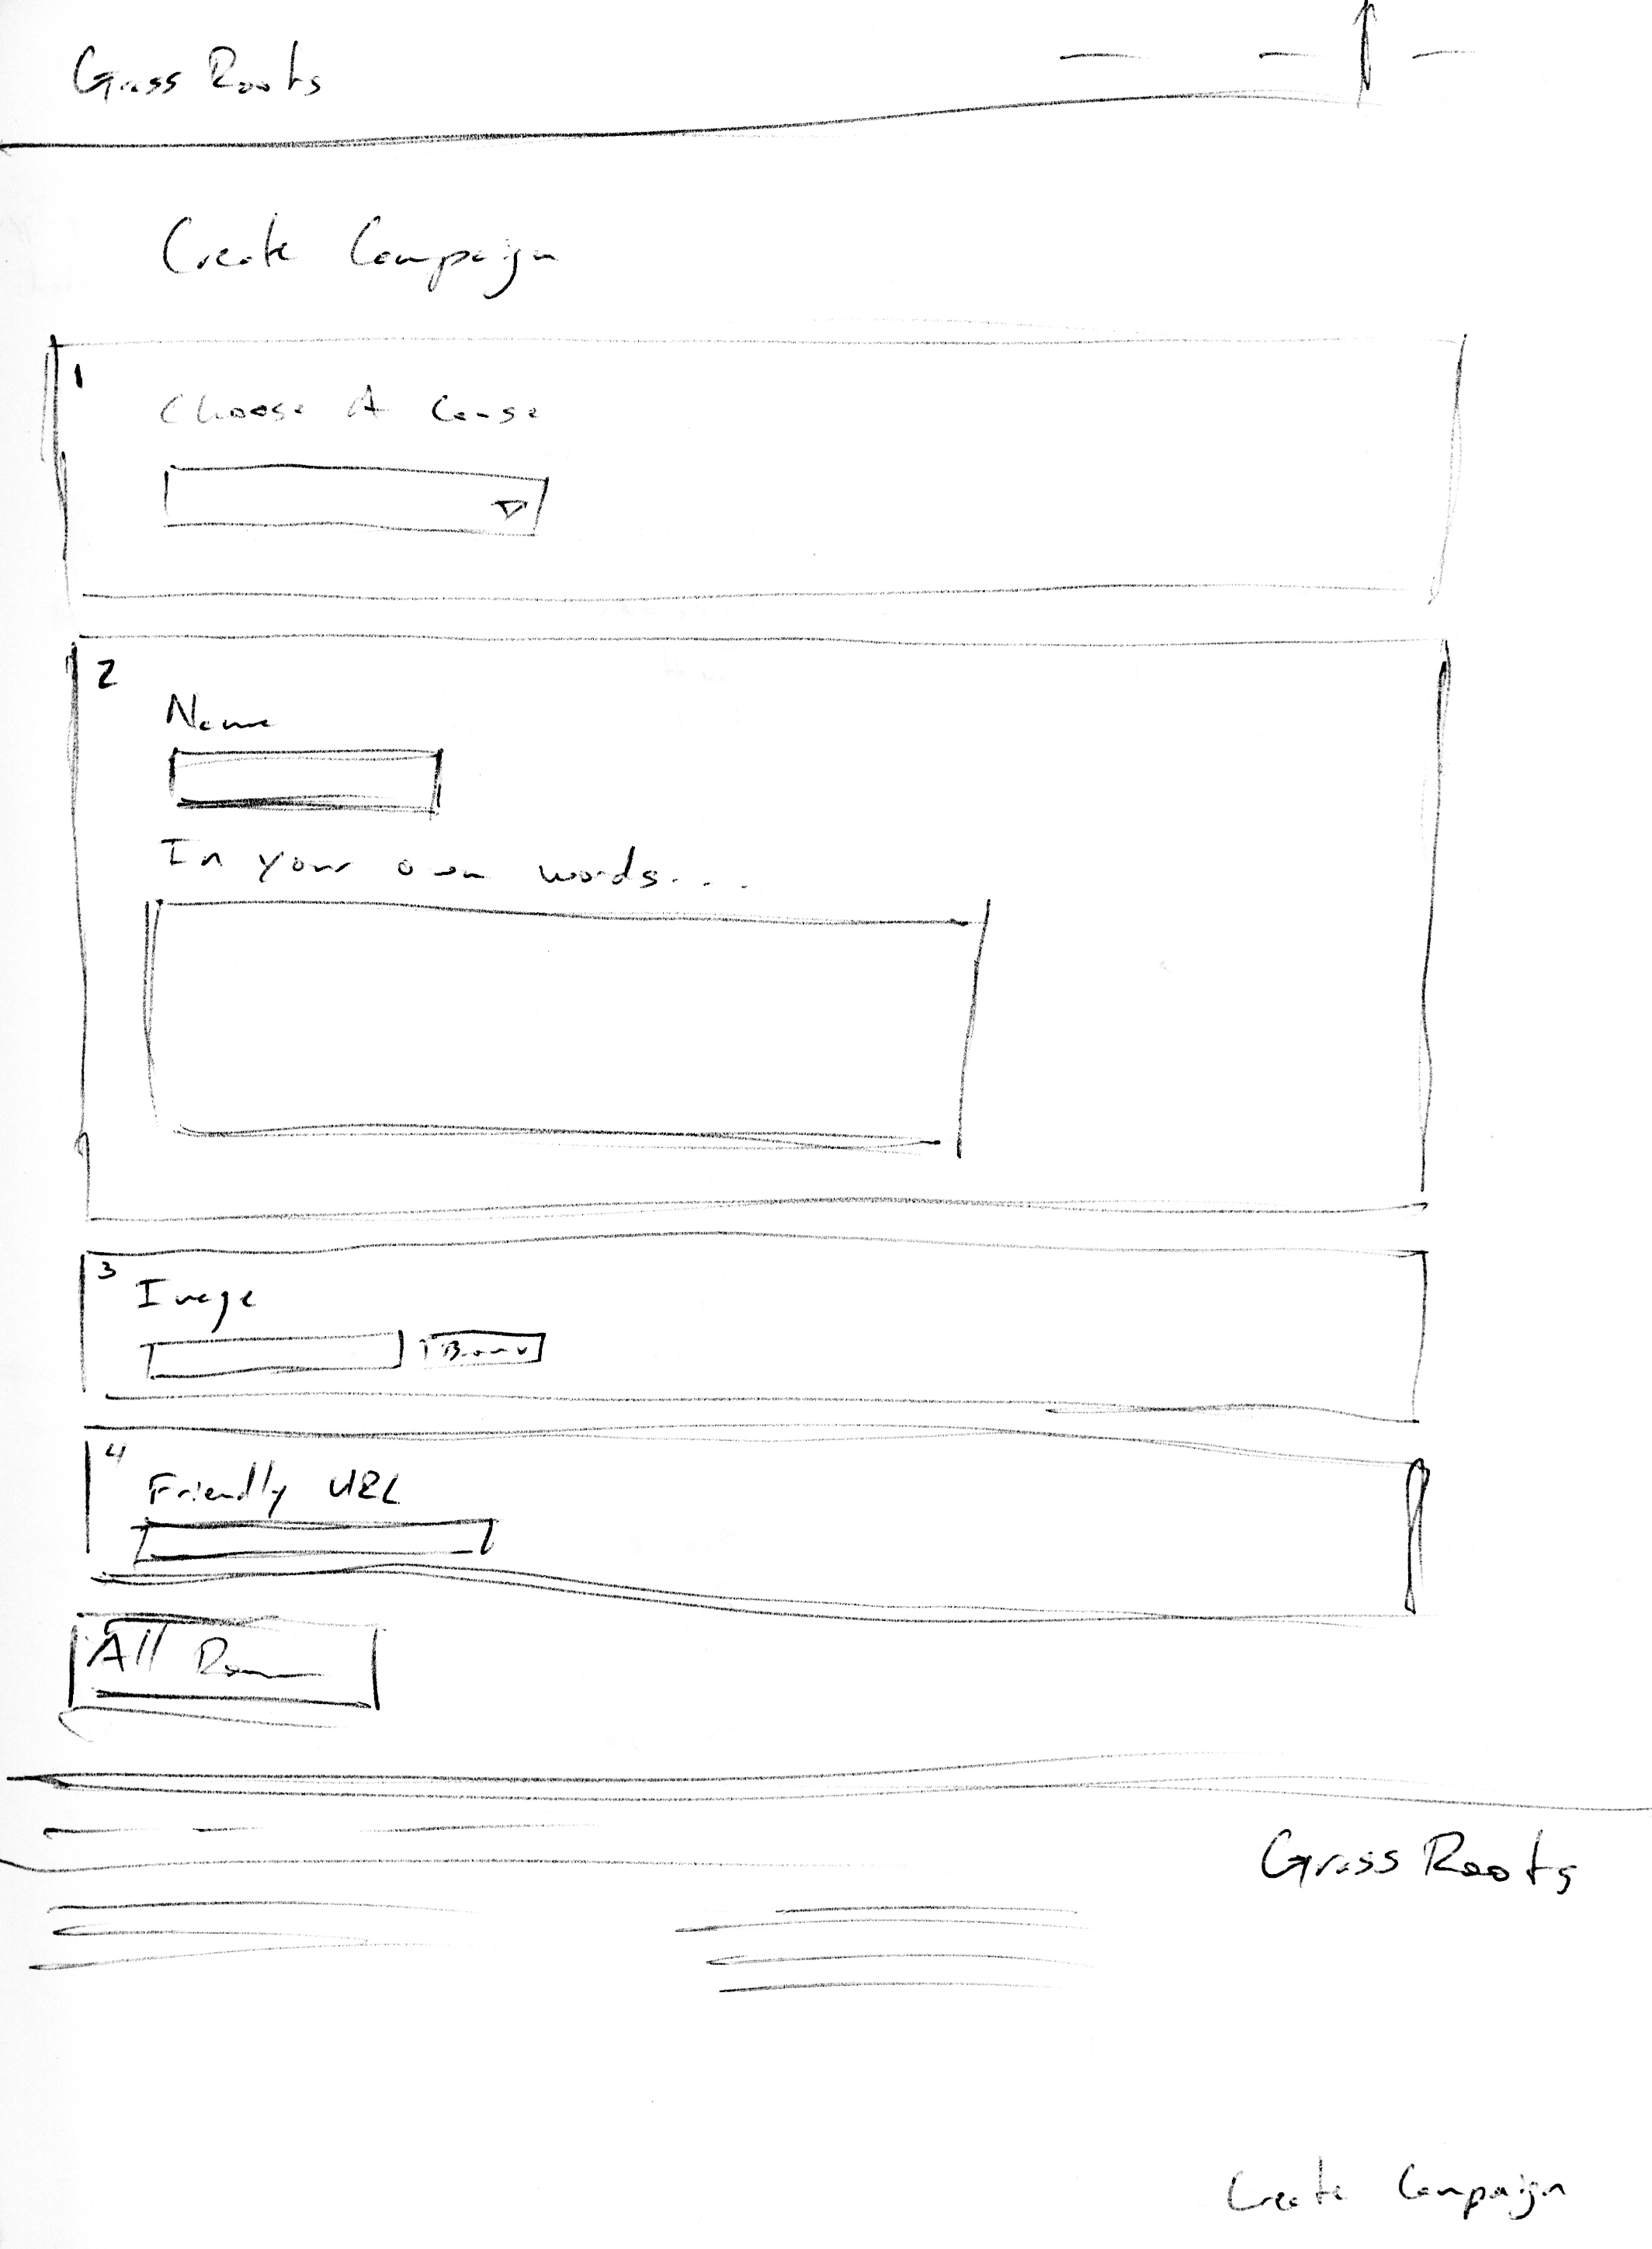 Grass Roots
Create Campaign
1
Choose A Cause
2
Name
In your own words...
3
Image
4
Friendly URL
All
Grass Roots
Create Campaign